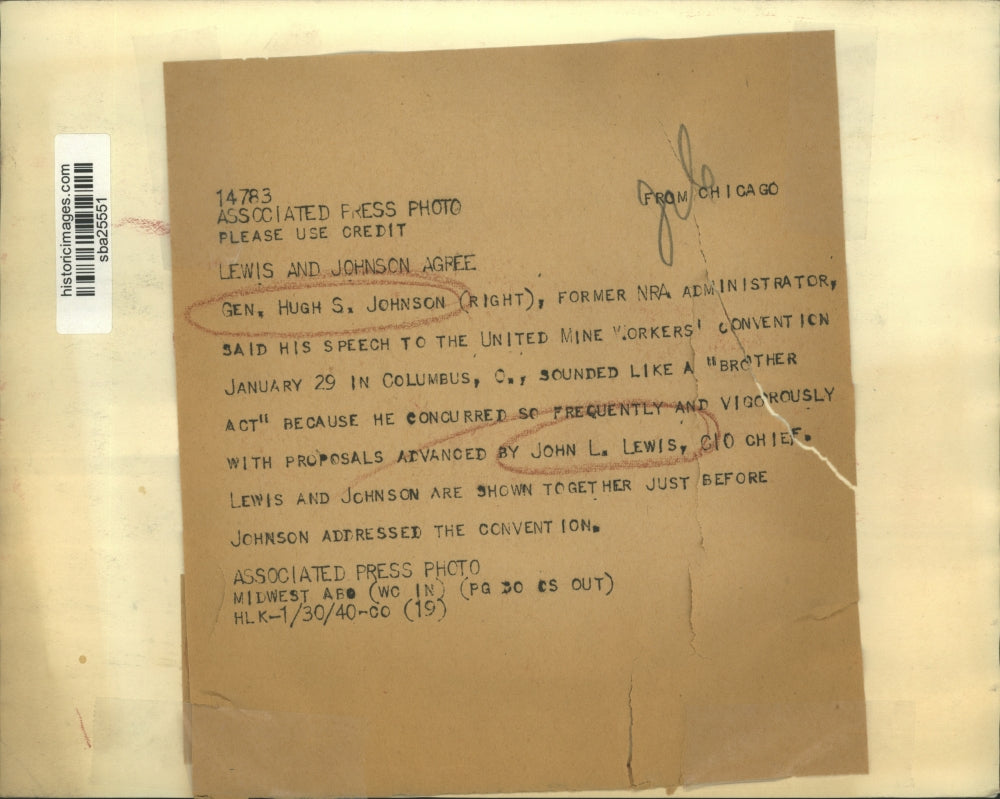 historicimages.com
sba25551
14783
ASSOCIATED PRESS PHOTO
PLEASE USE CREDIT
FROM CHICAGO
LEWIS AND JOHNSON AGREE
GEN. HUGH S. JOHNSON (RIGHT), FORMER NRA ADMINISTRATOR,
SAID HIS SPEECH TO THE UNITED MINE WORKERS' CONVENTION
JANUARY 29 IN COLUMBUS, O., SOUNDED LIKE A "BROTHER
ACT" BECAUSE HE CONCURRED SO FREQUENTLY AND VIGOROUSLY
WITH PROPOSALS ADVANCED BY JOHN L. LEWIS, CIO CHIEF.
LEWIS AND JOHNSON ARE SHOWN TOGETHER JUST BEFORE
JOHNSON ADDRESSED THE CONVENTION.
ASSOCIATED PRESS PHOTO
MIDWEST ABO (WC IN) (PG DO CS OUT)
HLK-1/30/40-CO (19)